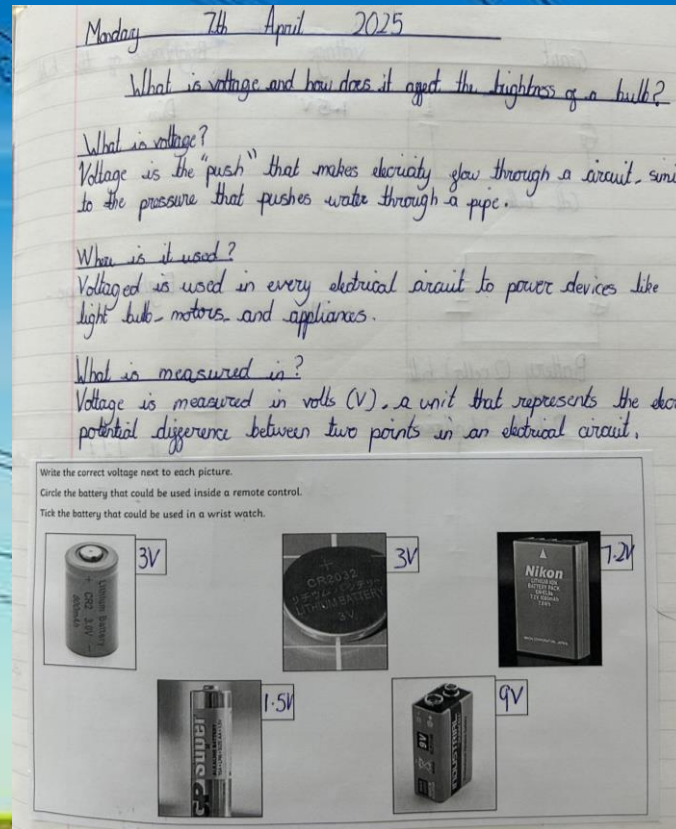 Monday 7th April 2025
What is voltage and how does it affect the brightness of a bulb?
What is voltage?
Voltage is the "push" that makes elecricity flow through a circuit, simi
to the pressure that pushes water through a pipe.
Where is it used?
Voltaged is used in every eletrical circuit to power devices like
light bulb, motors, and appliances.
What is measured in?
Voltage is measured in volts (V), a unit that represents the elec
potential difference between two points in an eletrical circuit.
Write the correct voltage next to each picture.
Circle the battery that could be used inside a remote control.
Tick the battery that could be used in a wrist watch.
3V
3V
7.2V
Lithium Battery
CR2 3.0V
CR2032
LITHIUM BATTERY
3V
Nikon
LITHIUM ION
BATTERY PACK
1.5V
9V
GP super
ALKALINE BATTERY
9V
INDUSTRIAL